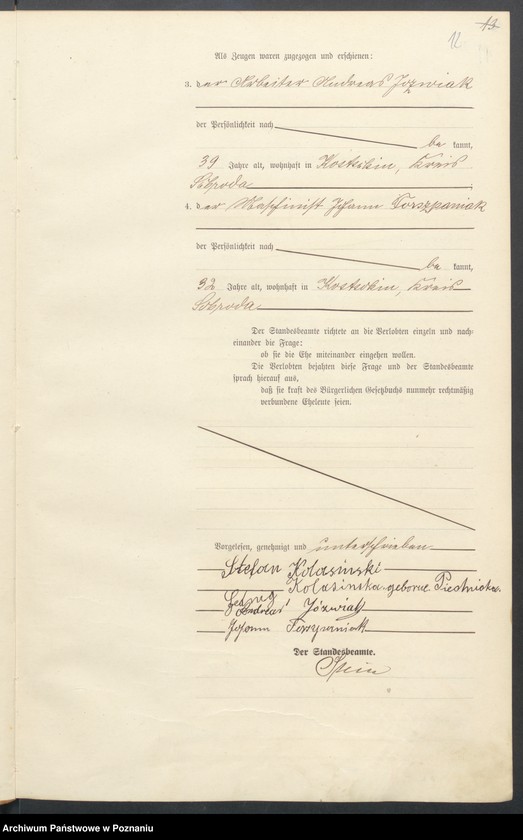 12
Als Zeugen waren zugezogen und erschienen:
3. der Arbeiter Andreas Józwiak
der Persönlichkeit nach
be kannt,
39 Jahre alt, wohnhaft in Kostschin, Kreis
Schroda
4. der Maschinist Johann Torszpaniak
der Persönlichkeit nach
be kannt,
32 Jahre alt, wohnhaft in Kostschin, Kreis
Schroda
Der Standesbeamte richtete an die Verlobten einzeln und nach-
einander die Frage:
ob sie die Ehe miteinander eingehen wollen.
Die Verlobten bejahten diese Frage und der Standesbeamte
sprach hierauf aus,
daß sie kraft des Bürgerlichen Gesetzbuchs nunmehr rechtmäßig
verbundene Eheleute seien.
Vorgelesen, genehmigt und unterschrieben
Stefan Kolasinski
Kolasinska geborne
Andreas Józwiak
Johann
Der Standesbeamte.
Stein
Archiwum Państwowe w Poznaniu